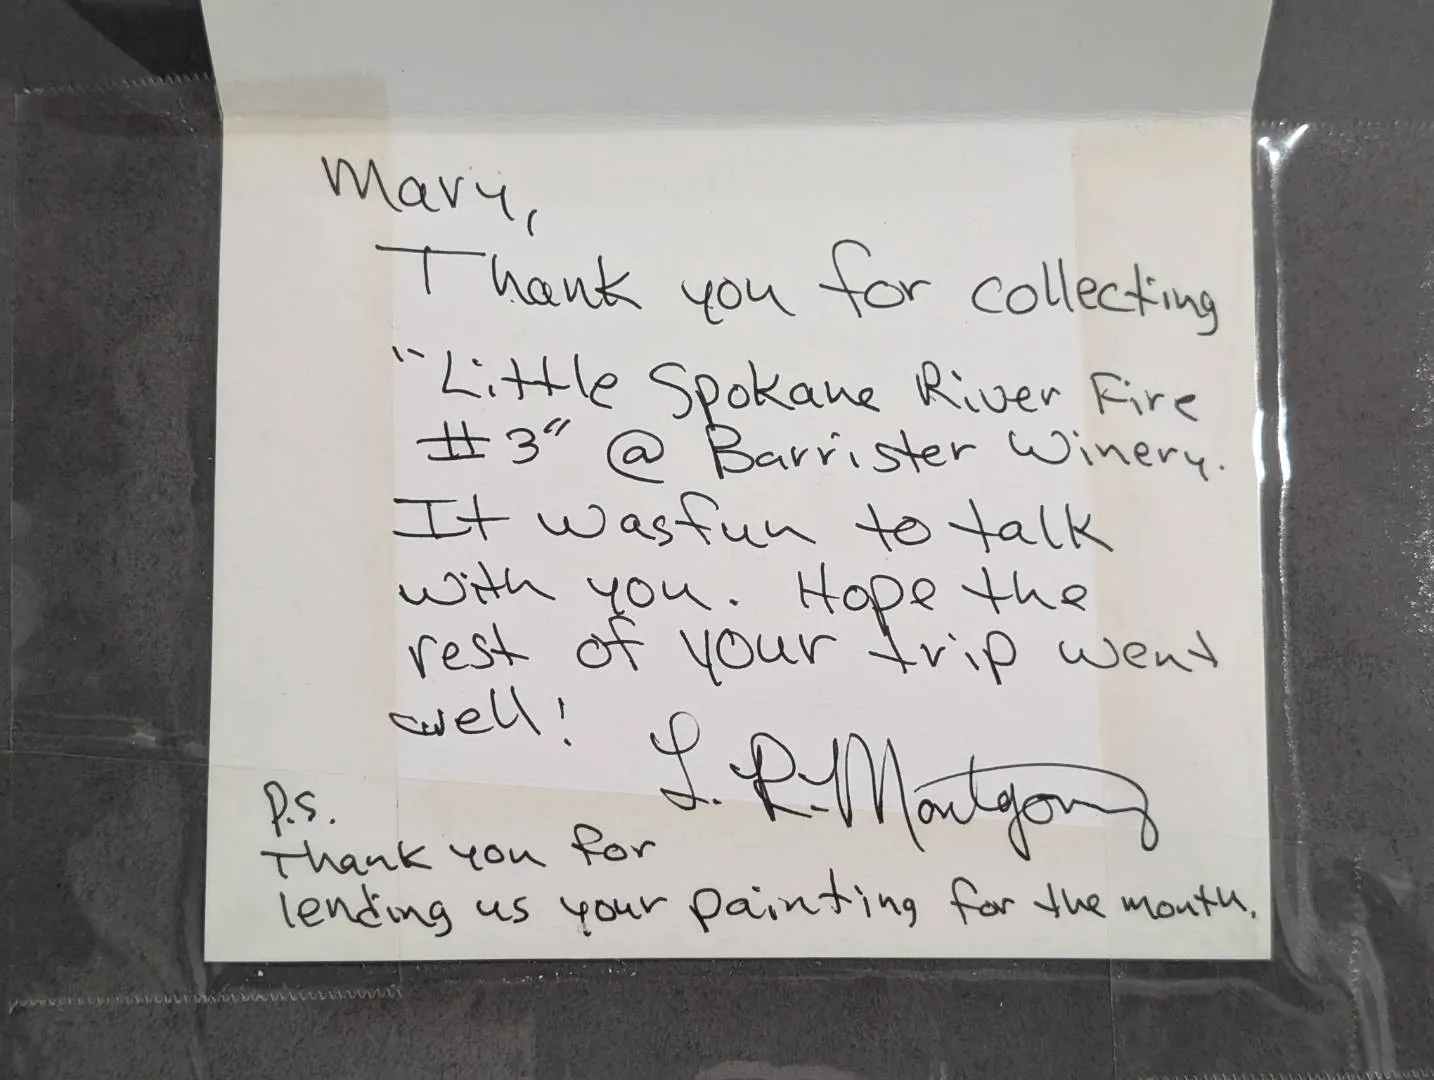 Mary,
Thank you for collecting
"Little Spokane River Fire
#3" @ Barrister Winery.
It was fun to talk
with you. Hope the
rest of your trip went
well!
L. R. Montgomery
P.S.
Thank you for
lending us your painting for the month.